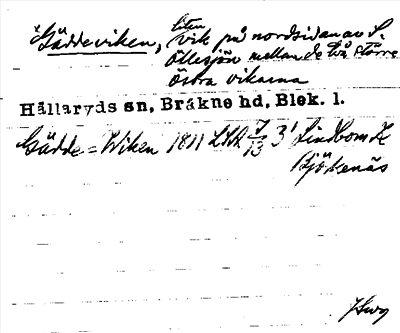 Gäddeviken, liten vik på nordsidan av S.
Öllesjön mellan de två större
östra vikarna
Hällaryds sn, Bräkne hd, Blek. l.
Gädde=Wiken 1811 LSA 7/13 3¹ Lindbom K
Björkenäs